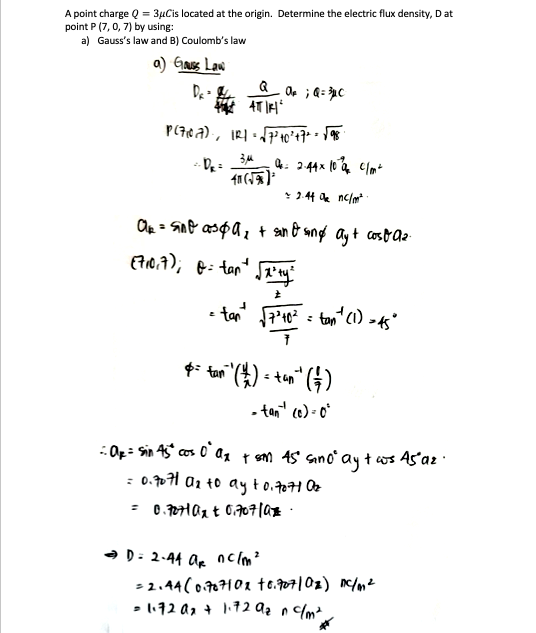 A point charge Q = 3μCis located at the origin. Determine the electric flux density, D at
point P (7, 0, 7) by using:
a) Gauss's law and B) Coulomb's law
a) Gauss Law
D_R = Q / 4π|R|² a_R ; Q = 3μC
P(7,0,7), |R| = √7²+0²+7² = √98
∴ D_R = 3μ / 4π(√98)² a_R = 2.44 x 10⁻⁹ a_R C/m²
= 2.44 a_R nC/m²
a_R = sinθ cosφ a_x + sinθ sinφ a_y + cosθ a_z
(7,0,7); θ = tan⁻¹ √x²+y² / z
= tan⁻¹ √7²+0² / 7 = tan⁻¹(1) = 45°
φ = tan⁻¹(y/x) = tan⁻¹(0/7)
= tan⁻¹(0) = 0°
∴ a_R = sin 45° cos 0° a_x + sin 45° sin 0° a_y + cos 45° a_z
= 0.7071 a_x + 0 a_y + 0.7071 a_z
= 0.7071 a_x + 0.7071 a_z
→ D = 2.44 a_R nC/m²
= 2.44 (0.7071 a_x + 0.7071 a_z) nC/m²
= 1.72 a_x + 1.72 a_z nC/m²